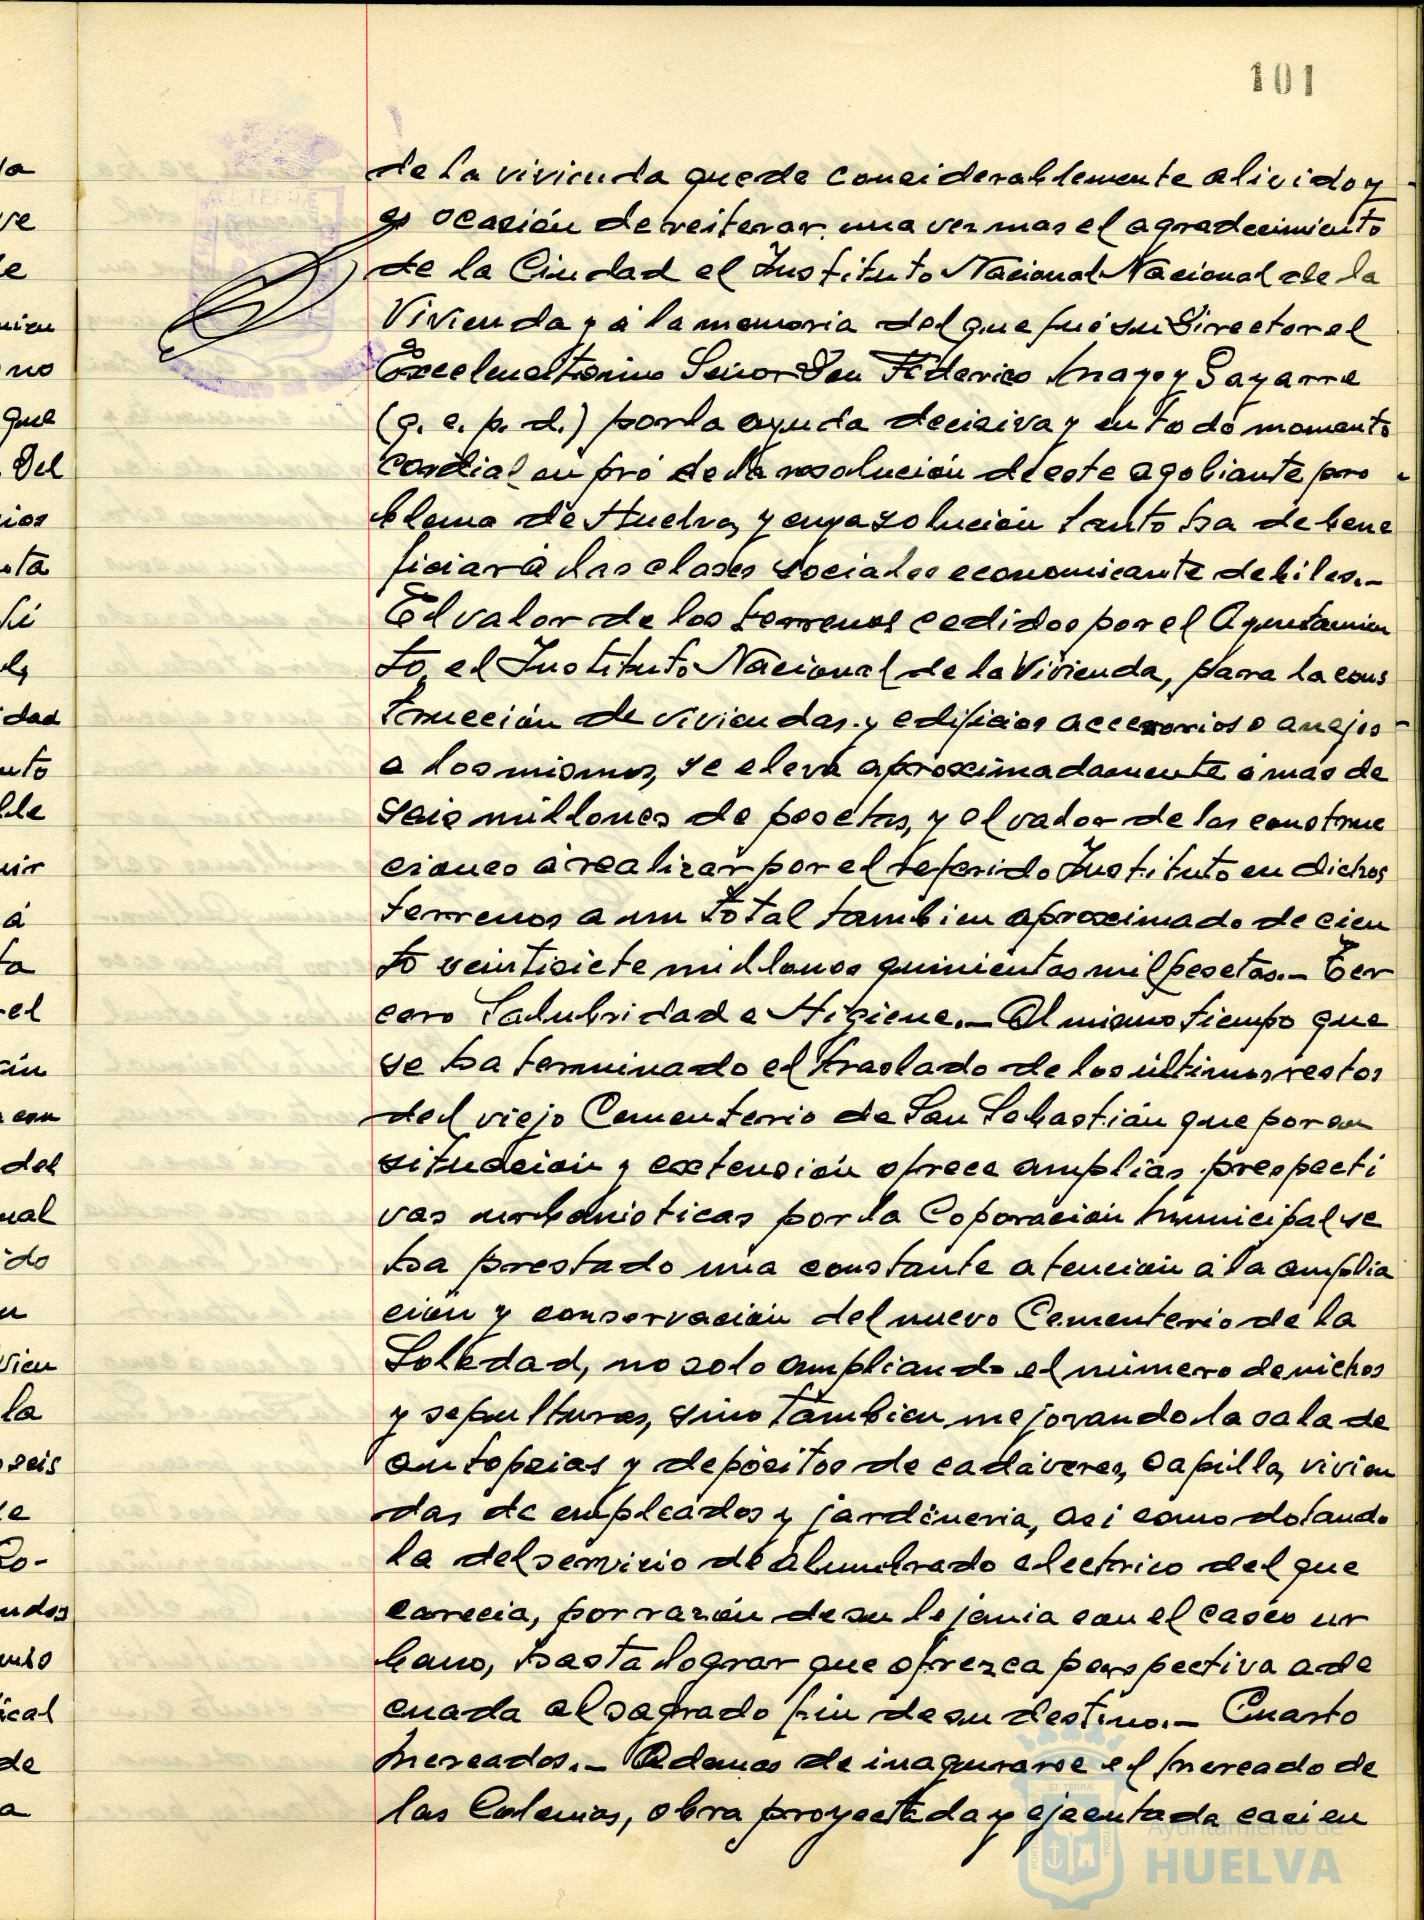 101
de la vivienda quede considerablemente alivido y
es ocasión de reiterar una vez mas el agradecimiento
de la Ciudad el Instituto Nacional Nacional de la
Vivienda y á la memoria del que fué su Director el
Excelentisimo Señor Don Federico Mayo y Gayarre
(q. e. p. d.) por la ayuda decisiva y en todo momento
cordial en pró de la resolución de este agobiante pro
blema de Huelva, y cuya solución tanto ha de bene
ficiar á las clases sociales economicante debiles.-
El valor de los terrenos cedidos por el Ayuntamien
to, el Instituto Nacional de la Vivienda, para la cons
trucción de viviendas y edificios accesorios o anejos
a los mismos, se eleva aproximadamente a mas de
seis millones de pesetas, y el valor de las construc
ciones á realizar por el referido Instituto en dichos
terrenos a un total tambien aproximado de cien
to veintisiete millones quinientas mil pesetas.- Ter
cero Salubridad e Higiene.- Al mismo tiempo que
se ha terminado el traslado de los últimos restos
del viejo Cementerio de San Sebastián que por su
situación y extensión ofrece amplias prespecti
vas urbanisticas por la Coporación Municipal se
ha prestado una constante atención á la amplia
ción y conservación del nuevo Cementerio de la
Soledad, no solo ampliando el número de nichos
y sepulturas, sino tambien mejorando la sala de
autopsias y depósitos de cadáveres, capilla, vivien
das de empleados y jardineria, asi como dotando
la del servicio de alumbrado electrico del que
carecia, por razón de su lejania con el casco ur
bano, hasta lograr que ofrezca perspectiva ade
cuada al sagrado fin de su destino.- Cuarto
Mercados.- Ademas de inagurarse el Mercado de
las Colonias, obra proyectada y ejecutada casi en
Ayuntamiento de
HUELVA